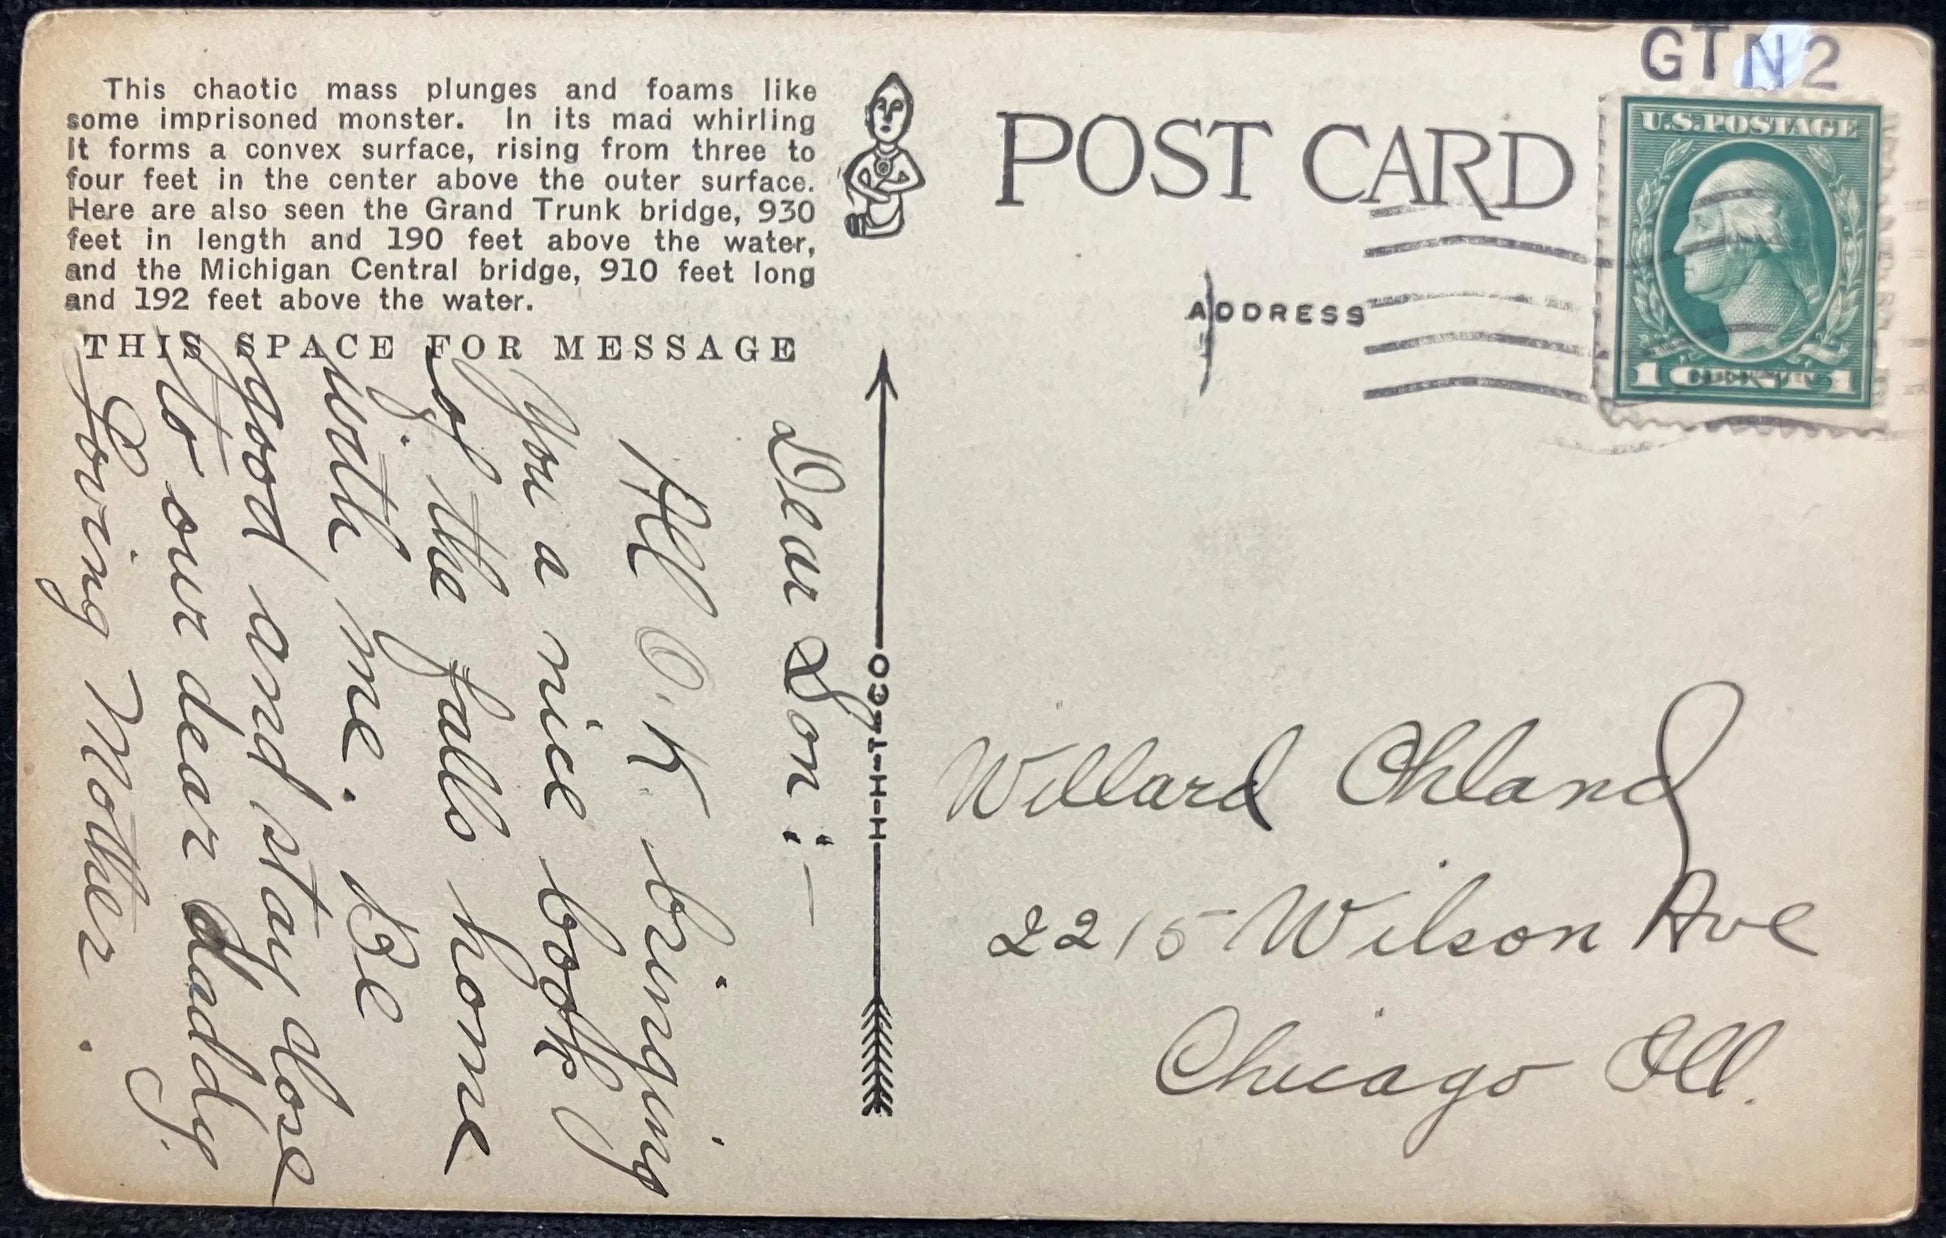 This chaotic mass plunges and foams like
some imprisoned monster. In its mad whirling
it forms a convex surface, rising from three to
four feet in the center above the outer surface.
Here are also seen the Grand Trunk bridge, 930
feet in length and 190 feet above the water,
and the Michigan Central bridge, 910 feet long
and 192 feet above the water.
THIS SPACE FOR MESSAGE
Dear Son :—
All O.K. bringing
You a nice book
of the falls home
with me. Be
good and stay close
to our dear daddy.
Loving Mother.
H-H-T-CO
POST CARD
ADDRESS
GTN2
U.S. POSTAGE
1 CENT 1
Willard Ohland
2215 Wilson Ave
Chicago Ill.